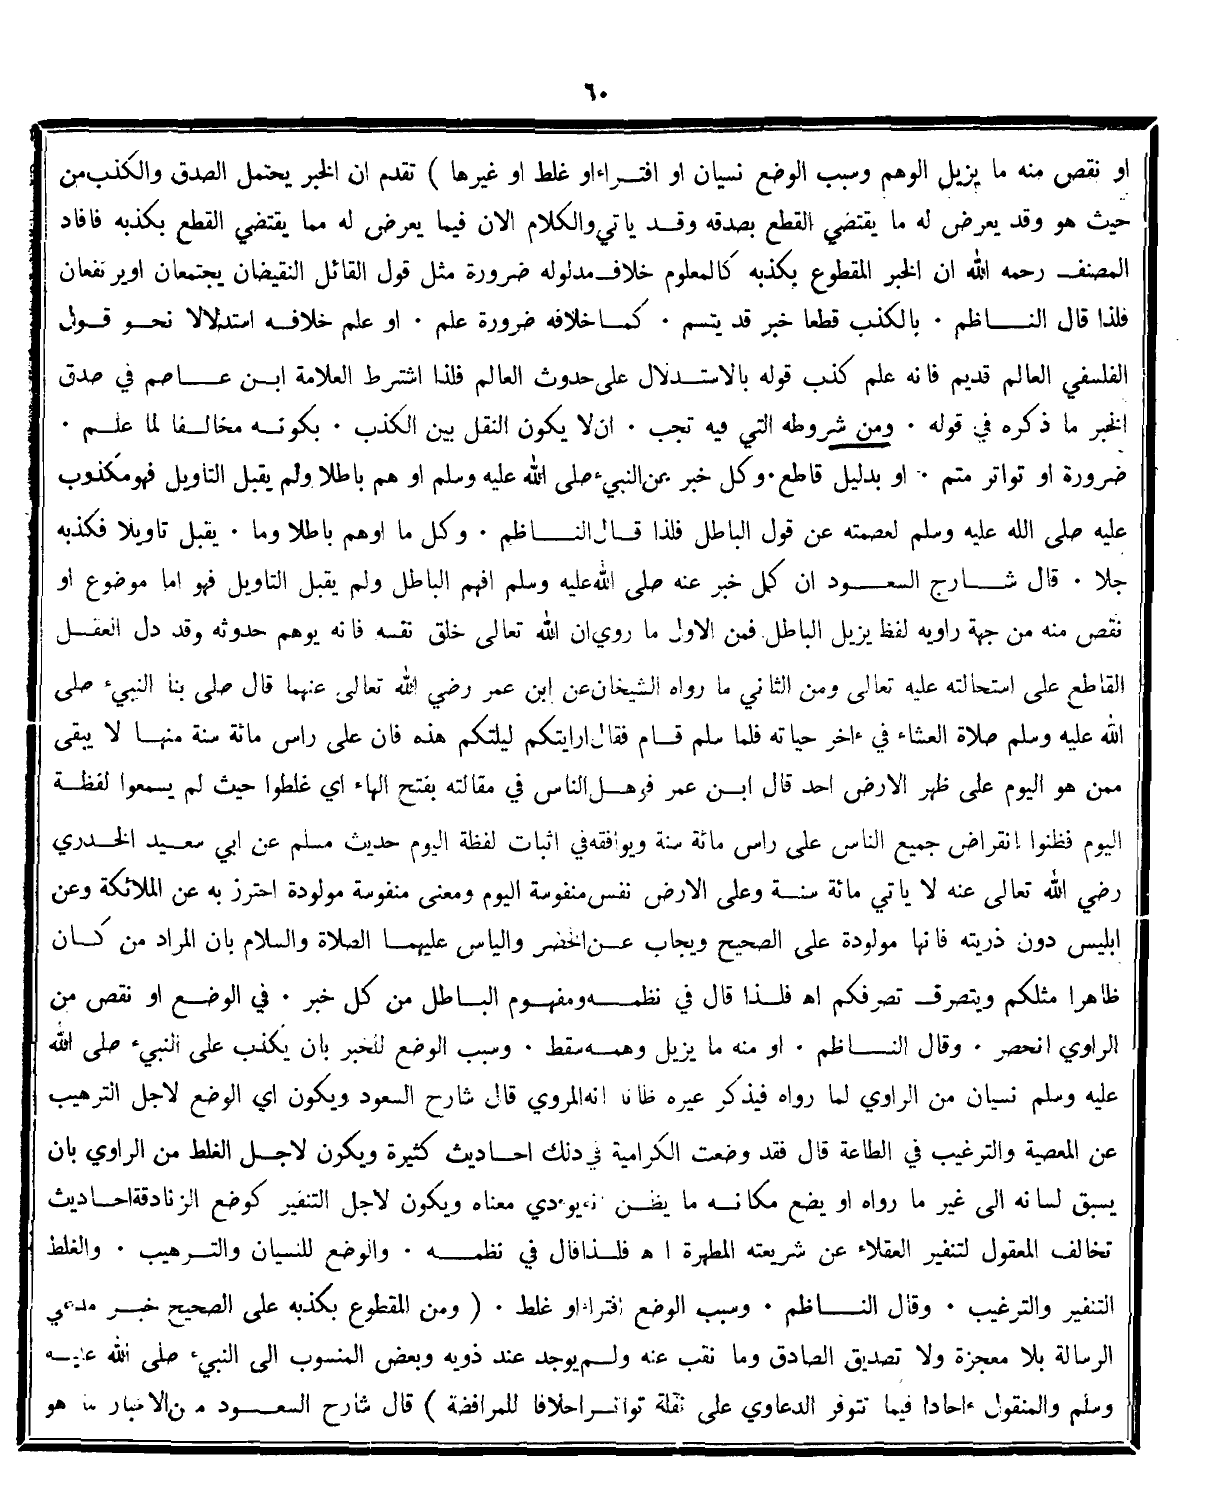 ٦٠
او نقص منه ما يزيل الوهم وسبب الوضع نسيان او افتراء او غلط او غيرها ) تقدم ان الخبر يحتمل الصدق والكذب من
حيث هو وقد يعرض له ما يقتضي القطع بصدقه وقد ياتي والكلام الان فيما يعرض له مما يقتضي القطع بكذبه فافاد
المصنف رحمه الله ان الخبر المقطوع بكذبه كالمعلوم خلاف مدلوله ضرورة مثل قول القائل النقيضان يجتمعان اويرتفعان
فلذا قال الناظم ٠ بالكذب قطعا خبر قد يتسم ٠ كما خلافه ضرورة علم ٠ او علم خلافه استدلالا نحو قول
الفلسفي العالم قديم فانه علم كذب قوله بالاستدلال على حدوث العالم فلذا اشترط العلامة ابن عاصم في صدق
الخبر ما ذكره في قوله ٠ ومن شروطه التي فيه تجب ٠ ان لا يكون النقل بين الكذب ٠ بكونه مخالفا لما علم ٠
ضرورة او تواتر متم ٠ او بدليل قاطع ٠ وكل خبر عن النبيء صلى الله عليه وسلم او هم باطلا ولم يقبل التاويل فهو مكذوب
عليه صلى الله عليه وسلم لعصمته عن قول الباطل فلذا قال الناظم ٠ وكل ما اوهم باطلا وما ٠ يقبل تاويلا فكذبه
جلا ٠ قال شارح السعود ان كل خبر عنه صلى الله عليه وسلم افهم الباطل ولم يقبل التاويل فهو اما موضوع او
نقص منه من جهة راويه لفظ يزيل الباطل فمن الاول ما روي ان الله تعالى خلق نفسه فانه يوهم حدوثه وقد دل العقل
القاطع على استحالته عليه تعالى ومن الثاني ما رواه الشيخان عن ابن عمر رضي الله تعالى عنهما قال صلى بنا النبيء صلى
الله عليه وسلم صلاة العشاء في ءاخر حياته فلما سلم قام فقال ارايتكم ليلتكم هذه فان على راس مائة سنة منها لا يبقى
ممن هو اليوم على ظهر الارض احد قال ابن عمر فوهل الناس في مقالته بفتح الهاء اي غلطوا حيث لم يسمعوا لفظة
اليوم فظنوا انقراض جميع الناس على راس مائة سنة ويوافقه في اثبات لفظة اليوم حديث مسلم عن ابي سعيد الخدري
رضي الله تعالى عنه لا ياتي مائة سنة وعلى الارض نفس منفوسة اليوم ومعنى منفوسة مولودة احترز به عن الملائكة وعن
ابليس دون ذريته فانها مولودة على الصحيح ويجاب عن الخضر والياس عليهما الصلاة والسلام بان المراد من كان
ظاهرا مثلكم ويتصرف تصرفكم اه فلذا قال في نظمه ومفهوم الباطل من كل خبر ٠ في الوضع او نقص من
الراوي انحصر ٠ وقال الناظم ٠ او منه ما يزيل وهمه سقط ٠ وسبب الوضع للخبر بان يكذب على النبيء صلى الله
عليه وسلم نسيان من الراوي لما رواه فيذكر غيره ظانا انه المروي قال شارح السعود ويكون اي الوضع لاجل الترهيب
عن المعصية والترغيب في الطاعة قال فقد وضعت الكرامية في ذلك احاديث كثيرة ويكون لاجل الغلط من الراوي بان
يسبق لسانه الى غير ما رواه او يضع مكانه ما يظن انه يوءدي معناه ويكون لاجل التنفير كوضع الزنادقة احاديث
تخالف المعقول لتنفير العقلاء عن شريعته المطهرة ا ه فلذا قال في نظمه ٠ والوضع للنسيان والترهيب ٠ والغلط
التنفير والترغيب ٠ وقال الناظم ٠ وسبب الوضع افتراء او غلط ٠ ( ومن المقطوع بكذبه على الصحيح خبر مدعي
الرسالة بلا معجزة ولا تصديق الصادق وما نقب عنه ولم يوجد عند ذويه وبعض المنسوب الى النبيء صلى الله عليه
وسلم والمنقول ءاحادا فيما تتوفر الدعاوي على نقلة تواترا خلافا للرافضة ) قال شارح السعود من الاخبار ما هو